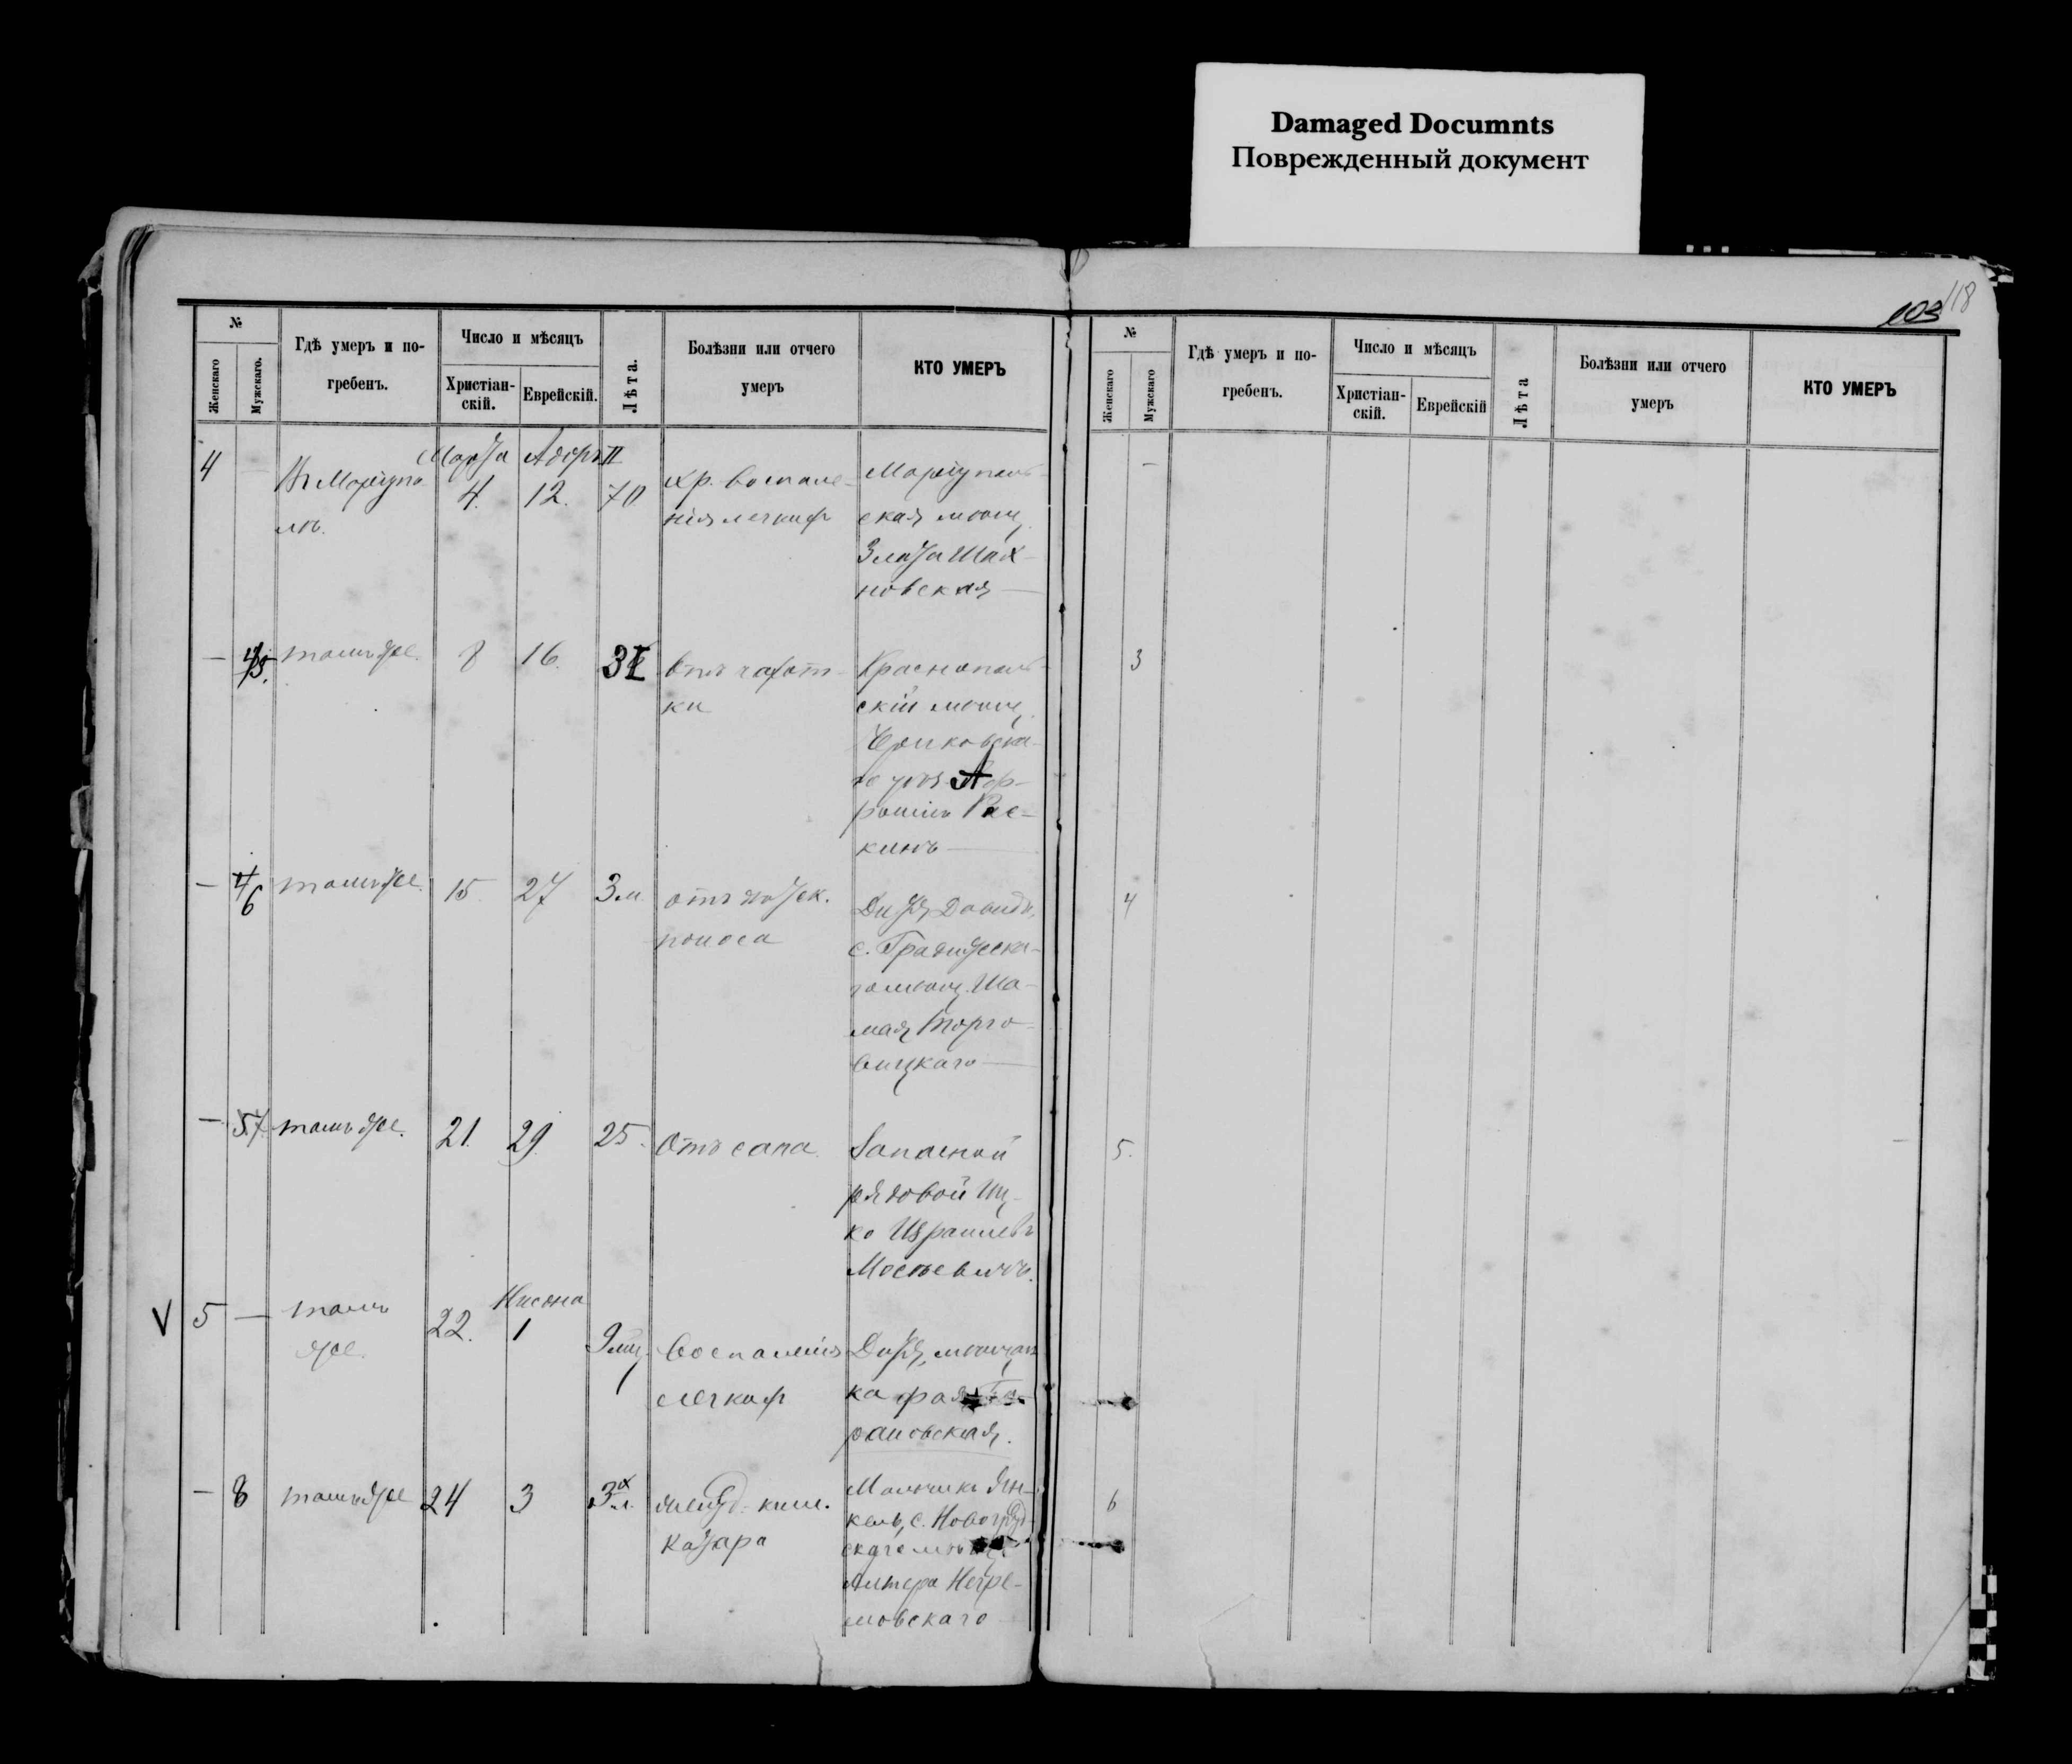 Damaged Documnts
Поврежденный документ
118
103
№
Женскаго
Мужскаго.
Гдѣ умеръ и по-
гребенъ.
Число и мѣсяцъ
Христіан-
скій.
Еврейскій.
Лѣта.
Болѣзни или отчего
умеръ
КТО УМЕРЪ
4 —
Въ Маріупо
лѣ.
Марта
4.
Адоръ II
12.
70
хр. воспале-
нія легкихъ
Маріуполь-
ская мѣщ.
Злата Шах-
новская
—
тамъ же.
8
16.
Отъ чахот-
ки
Краснополь-
скій мѣщ.
Раскинъ
—
6
тамъ же.
15
27
3 м
отъ
поноса
Дитя Давидъ,
с. Градижска-
го мѣщ. Ша-
мая Торго-
вицкаго
—
7
тамъ же.
21.
29.
25.
Отъ сапа.
Запасной
рядовой Иц-
ко Изра
5
—
тамъ
же.
22.
Нисона
1
9 мц.
Воспаленія
легкихъ
Дитя, мѣщан
ка
рановская.
—
8
тамъ же
24
3
3 л.
желуд. киш.
катара
Мальчикъ Ян-
кель, с. Новогруд-
скаго
Алтера
мовскаго
№
Женскаго
Мужскаго
Гдѣ умеръ и по-
гребенъ.
Число и мѣсяцъ
Христіан-
скій.
Еврейскій
Лѣта
Болѣзни или отчего
умеръ
КТО УМЕРЪ
—
3
4
5.
6